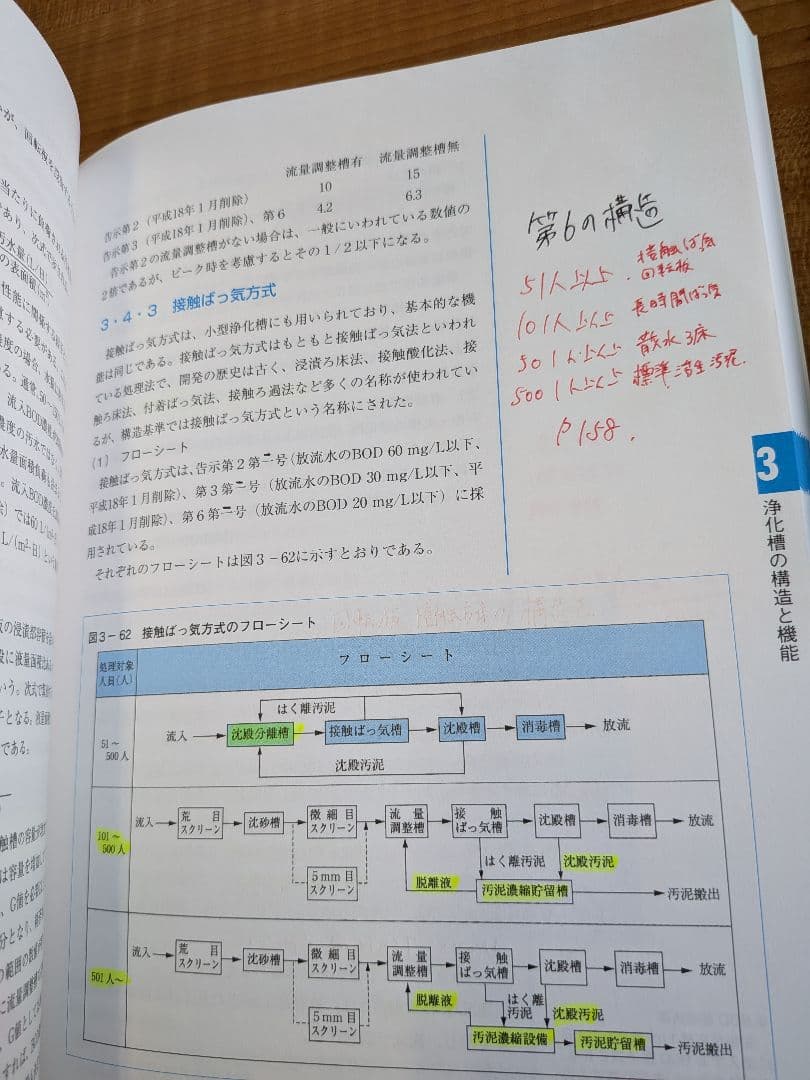 流量調整槽有 流量調整槽無
告示第2(平成18年1月削除) 10 15
告示第3(平成18年1月削除)、第6 4.2 6.3
告示第2の流量調整槽がない場合は、一般にいわれている数値の
2倍であるが、ピーク時を考慮するとその1/2以下になる。
3・4・3 接触ばっ気方式
接触ばっ気方式は、小型浄化槽にも用いられており、基本的な機
能は同じである。接触ばっ気方式はもともと接触ばっ気法といわれ
ている処理法で、開発の歴史は古く、浸漬ろ床法、接触酸化法、接
触ろ床法、付着ばっ気法、接触ろ過法など多くの名称が使われてい
るが、構造基準では接触ばっ気方式という名称にされた。
(1) フローシート
接触ばっ気方式は、告示第2第二号(放流水のBOD 60 mg/L以下、
平成18年1月削除)、第3第二号(放流水のBOD 30 mg/L以下、平
成18年1月削除)、第6第二号(放流水のBOD 20 mg/L以下)に採
用されている。
それぞれのフローシートは図3-62に示すとおりである。
第6の構造
51人以上 . 接触ばっ気
回転板
101人以上 長時間ばっ気
501人以上 散水ろ床
5001人以上 標準活性汚泥.
P158.
3
浄化槽の構造と機能
図3-62 接触ばっ気方式のフローシート
処理対象
人員(人)
フローシート
51~
500人
はく離汚泥
流入 沈殿分離槽 接触ばっ気槽 沈殿槽 消毒槽 放流
沈殿汚泥
101~
500人
流入 荒目スクリーン 沈砂槽 微細目スクリーン 流量調整槽 接触ばっ気槽 沈殿槽 消毒槽 放流
5mm目スクリーン
はく離汚泥 沈殿汚泥
脱離液 汚泥濃縮貯留槽 汚泥搬出
501人~
流入 荒目スクリーン 沈砂槽 微細目スクリーン 流量調整槽 接触ばっ気槽 沈殿槽 消毒槽 放流
5mm目スクリーン
脱離液 はく離汚泥 沈殿汚泥
汚泥濃縮設備 汚泥貯留槽 汚泥搬出